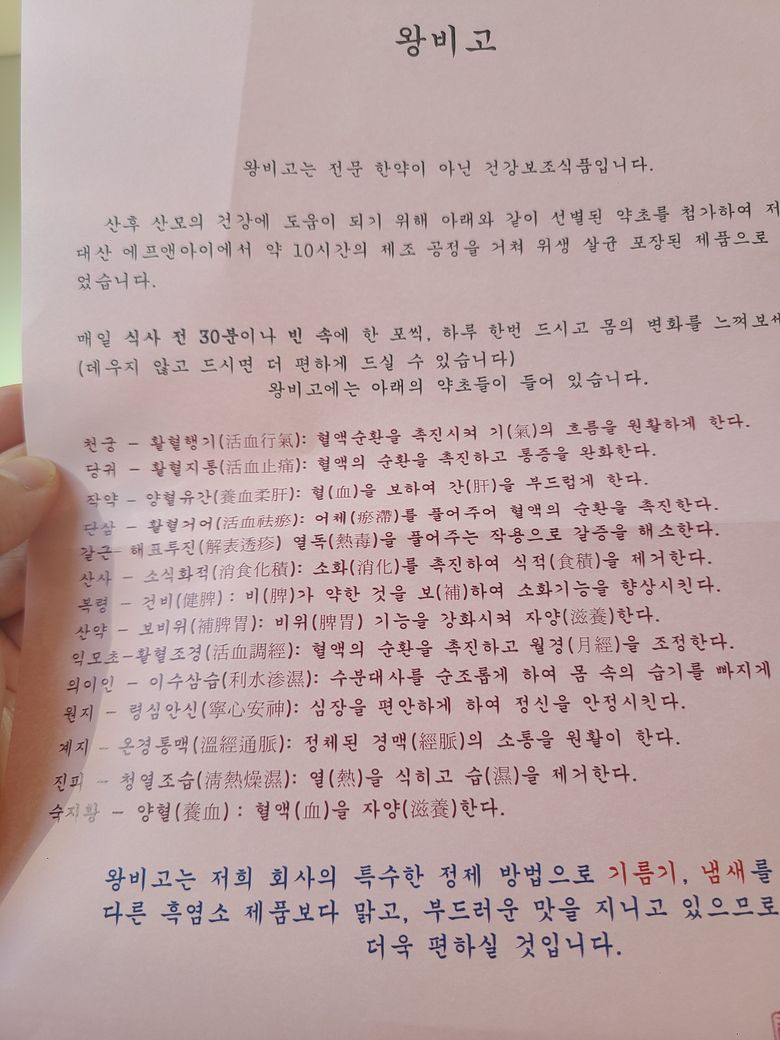 왕비고
왕비고는 전문 한약이 아닌 건강보조식품입니다.
산후 산모의 건강에 도움이 되기 위해 아래와 같이 선별된 약초를 첨가하여
대산 에프앤아이에서 약 10시간의 제조 공정을 거쳐 위생 살균 포장된 제품으로
었습니다.
매일 식사 전 30분이나 빈 속에 한 포씩, 하루 한번 드시고 몸의 변화를 느껴보세
(데우지 않고 드시면 더 편하게 드실 수 있습니다)
왕비고에는 아래의 약초들이 들어 있습니다.
천궁 – 활혈행기(活血行氣): 혈액순환을 촉진시켜 기(氣)의 흐름을 원활하게 한다.
당귀 – 활혈지통(活血止痛): 혈액의 순환을 촉진하고 통증을 완화한다.
작약 – 양혈유간(養血柔肝): 혈(血)을 보하여 간(肝)을 부드럽게 한다.
단삼 – 활혈거어(活血祛瘀): 어체(瘀滯)를 풀어주어 혈액의 순환을 촉진한다.
갈근 – 해표투진(解表透疹) 열독(熱毒)을 풀어주는 작용으로 갈증을 해소한다.
산사 – 소식화적(消食化積): 소화(消化)를 촉진하여 식적(食積)을 제거한다.
복령 – 건비(健脾) : 비(脾)가 약한 것을 보(補)하여 소화기능을 향상시킨다.
산약 – 보비위(補脾胃): 비위(脾胃) 기능을 강화시켜 자양(滋養)한다.
익모초–활혈조경(活血調經): 혈액의 순환을 촉진하고 월경(月經)을 조정한다.
의이인 – 이수삼습(利水渗濕): 수분대사를 순조롭게 하여 몸 속의 습기를 빠지게
원지 – 령심안신(寧心安神): 심장을 편안하게 하여 정신을 안정시킨다.
계지 – 온경통맥(溫經通脈): 정체된 경맥(經脈)의 소통을 원활이 한다.
진피 – 청열조습(淸熱燥濕): 열(熱)을 식히고 습(濕)을 제거한다.
숙지황 – 양혈(養血) : 혈액(血)을 자양(滋養)한다.
왕비고는 저희 회사의 특수한 정제 방법으로 기름기, 냄새를
다른 흑염소 제품보다 맑고, 부드러운 맛을 지니고 있으므로
더욱 편하실 것입니다.